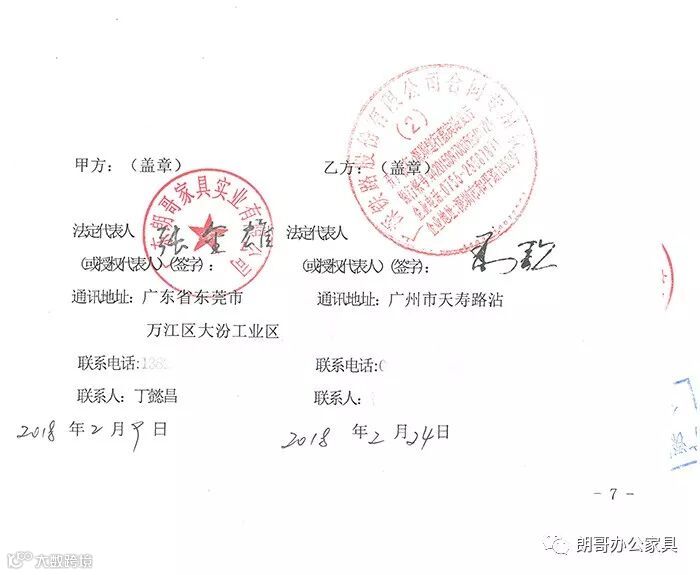 甲方：（盖章）
乙方：（盖章）
朗哥家具实业有限公司
铁路股份有限公司合同专用
（2）
法定代表人
张金雄
法定代表人
（或授权代表人）（签字）：
（或授权代表人）（签字）：
通讯地址：广东省东莞市
万江区大汾工业区
通讯地址：广州市天寿路沾
联系电话:
联系电话:
联系人：丁懿昌
联系人：
2018 年 2 月 9 日
2018 年 2 月 24 日
- 7 -
大数跨境
朗哥办公家具